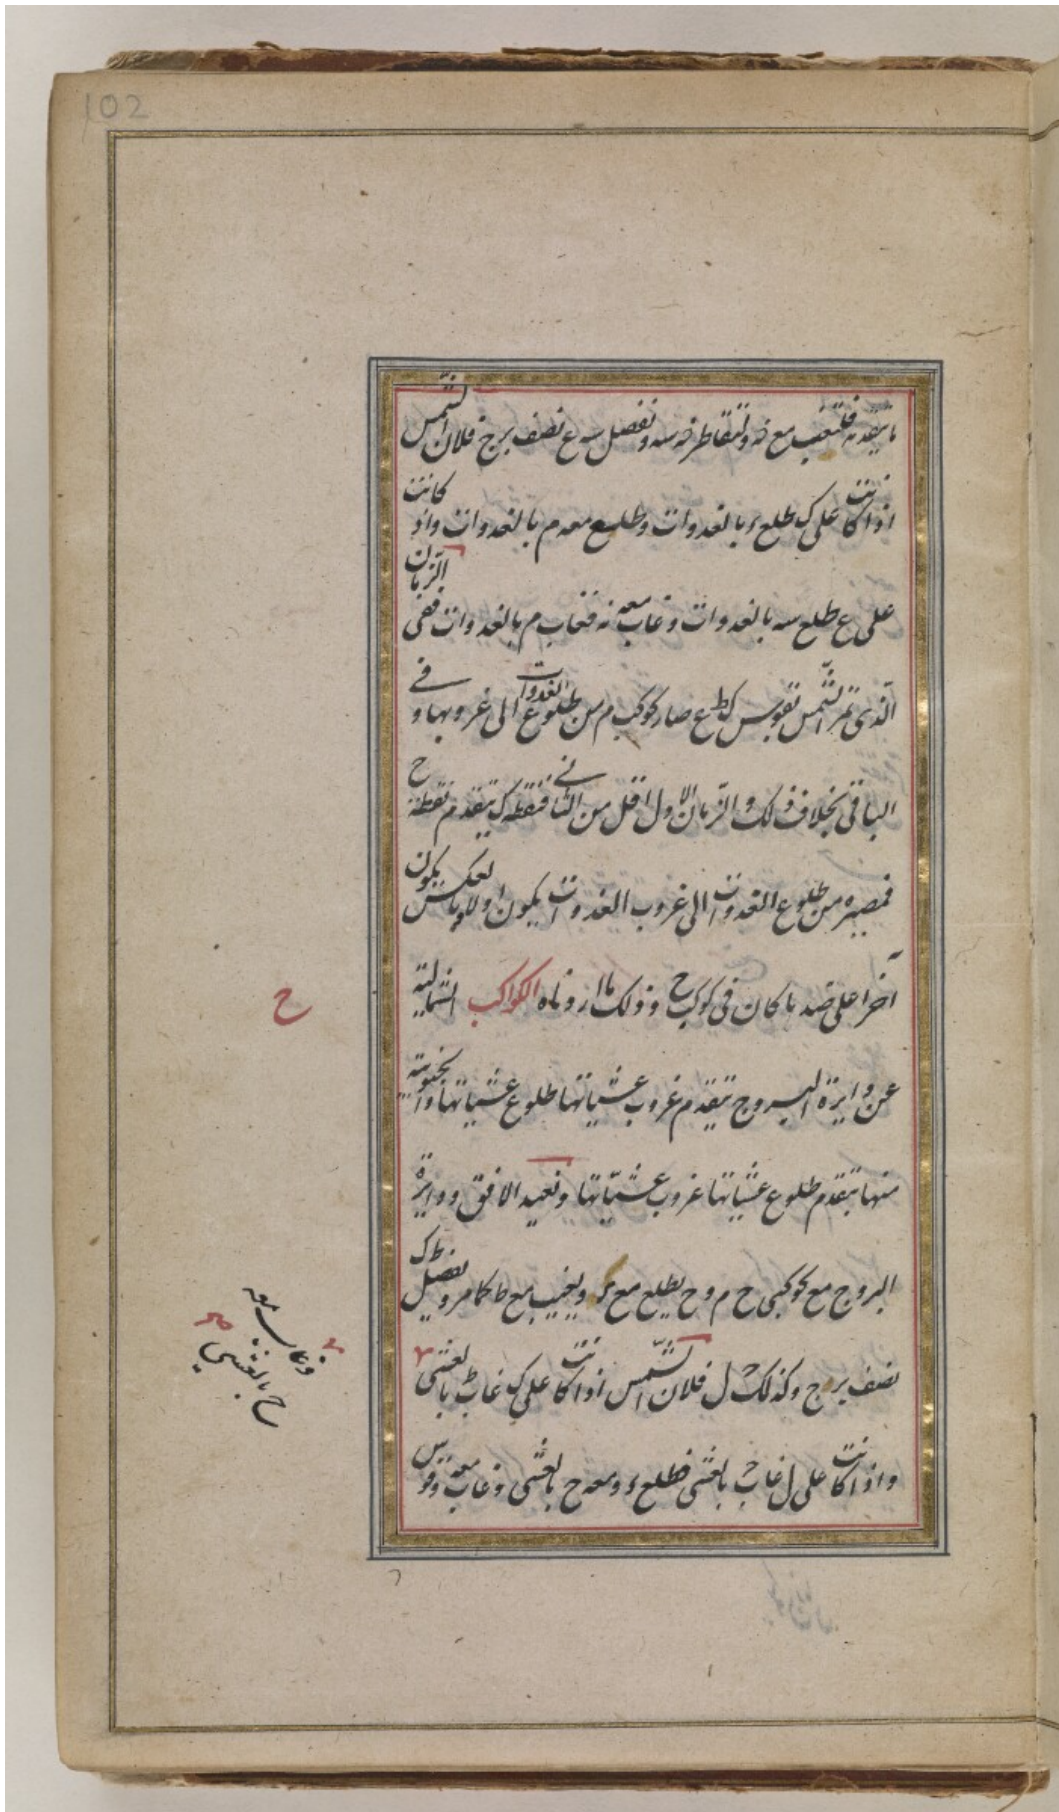 102
ما يتقدمه فلتغب مع نه وليتقاطر نه سه ونفصل سه ع نصف برج فلان الشمس
اذا كانت على ك طلع ء بالغدوات وطلع معه م بالغدوات واذا كانت
على ع طلع سه بالغدوات وغاب معه نه فغاب م بالغدوات ففى الزمان
الذى تمر الشمس بقوس ك ط ع صار كوكب م من طلوع الغدوات الى غروبها و فى
الباقى بخلاف ذلك والزمان الاول اقل من الثانى فنقطة ك يتقدم نقطة ع
فمصيره من طلوع الغدوات الى غروب الغدوات يكون اولا وبالعكس يكون
آخرا على ضد ما كان فى كوكب ح وذلك ما اردناه الكواكب الشمالية
عن دايرة البروج يتقدم غروب عشياتها طلوع عشياتها والجنوبية
منها يتقدم طلوع عشياتها غروب عشياتها ونعيد الافق ودايرة
البروج مع كوكبى ح م و ح يطلع مع ويغيب مع ط كما مر ونفصل ط ك
نصف برج وكذلك ح ل فلان الشمس اذا كانت على ك غاب ط بالعشى
واذا كانت على ل غاب ح بالعشى فطلع ء ومعه ح بالعشى وغاب معه وقوس
ح
وغاب معه
ح بالعشى